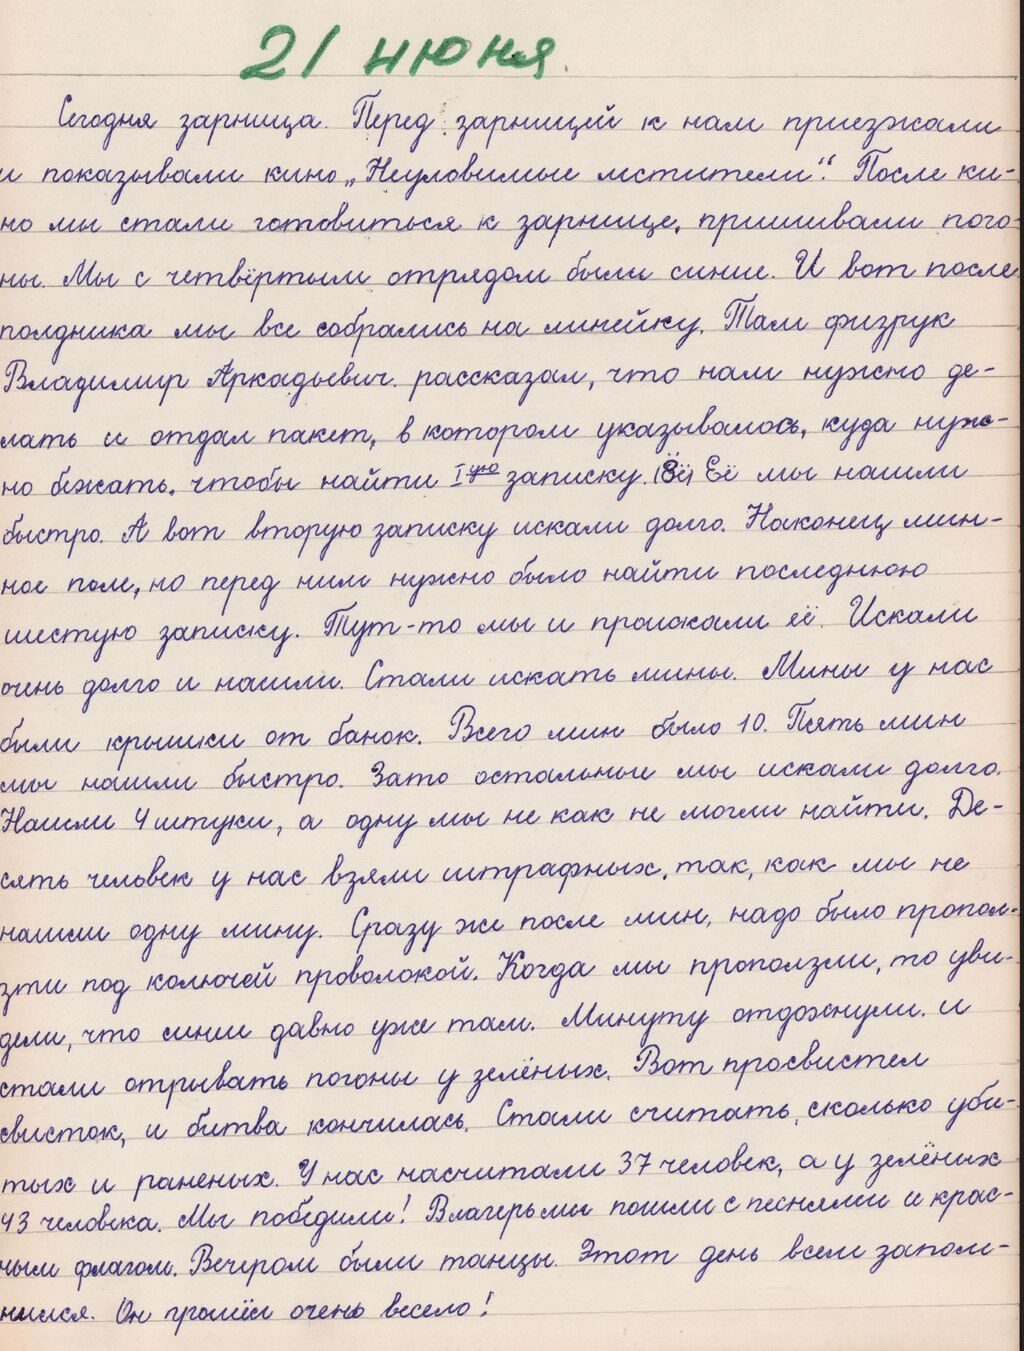 21 июня
Сегодня зарница. Перед зарницей к нам приезжали
и показывали кино „Неуловимые мстители“. После ки-
но мы стали готовиться к зарнице, пришивали пого-
ны. Мы с четвёртым отрядом были синие. И вот после
полдника мы все собрались на линейку. Там физрук
Владимир Аркадьевич рассказал, что нам нужно де-
лать и отдал пакет, в котором указывалось, куда нуж-
но бежать, чтобы найти I ую записку. (Её) Её мы нашли
быстро. А вот вторую записку искали долго. Наконец мин-
ное поле, но перед ним нужно было найти последнюю
шестую записку. Тут-то мы и проискали её. Искали
очень долго и нашли. Стали искать мины. Мины у нас
были крышки от банок. Всего мин было 10. Пять мин
мы нашли быстро. Зато остальные мы искали долго.
Нашли 4 штуки, а одну мы не как не могли найти. Де-
сять человек у нас взяли штрафных, так, как мы не
нашли одну мину. Сразу же после мин, надо было пропол-
зти под колючей проволокой. Когда мы проползли, то уви-
дели, что синии давно уже там. Минуту отдохнули и
стали отрывать погоны у зелёных. Вот просвистел
свисток, и битва кончилась. Стали считать, сколько уби-
тых и раненых. У нас насчитали 37 человек, а у зелёных
43 человека. Мы победили! Влагерь мы пошли с песнями и крас-
ным флагом. Вечером были танцы. Этот день всем запом-
нился. Он прошёл очень весело!